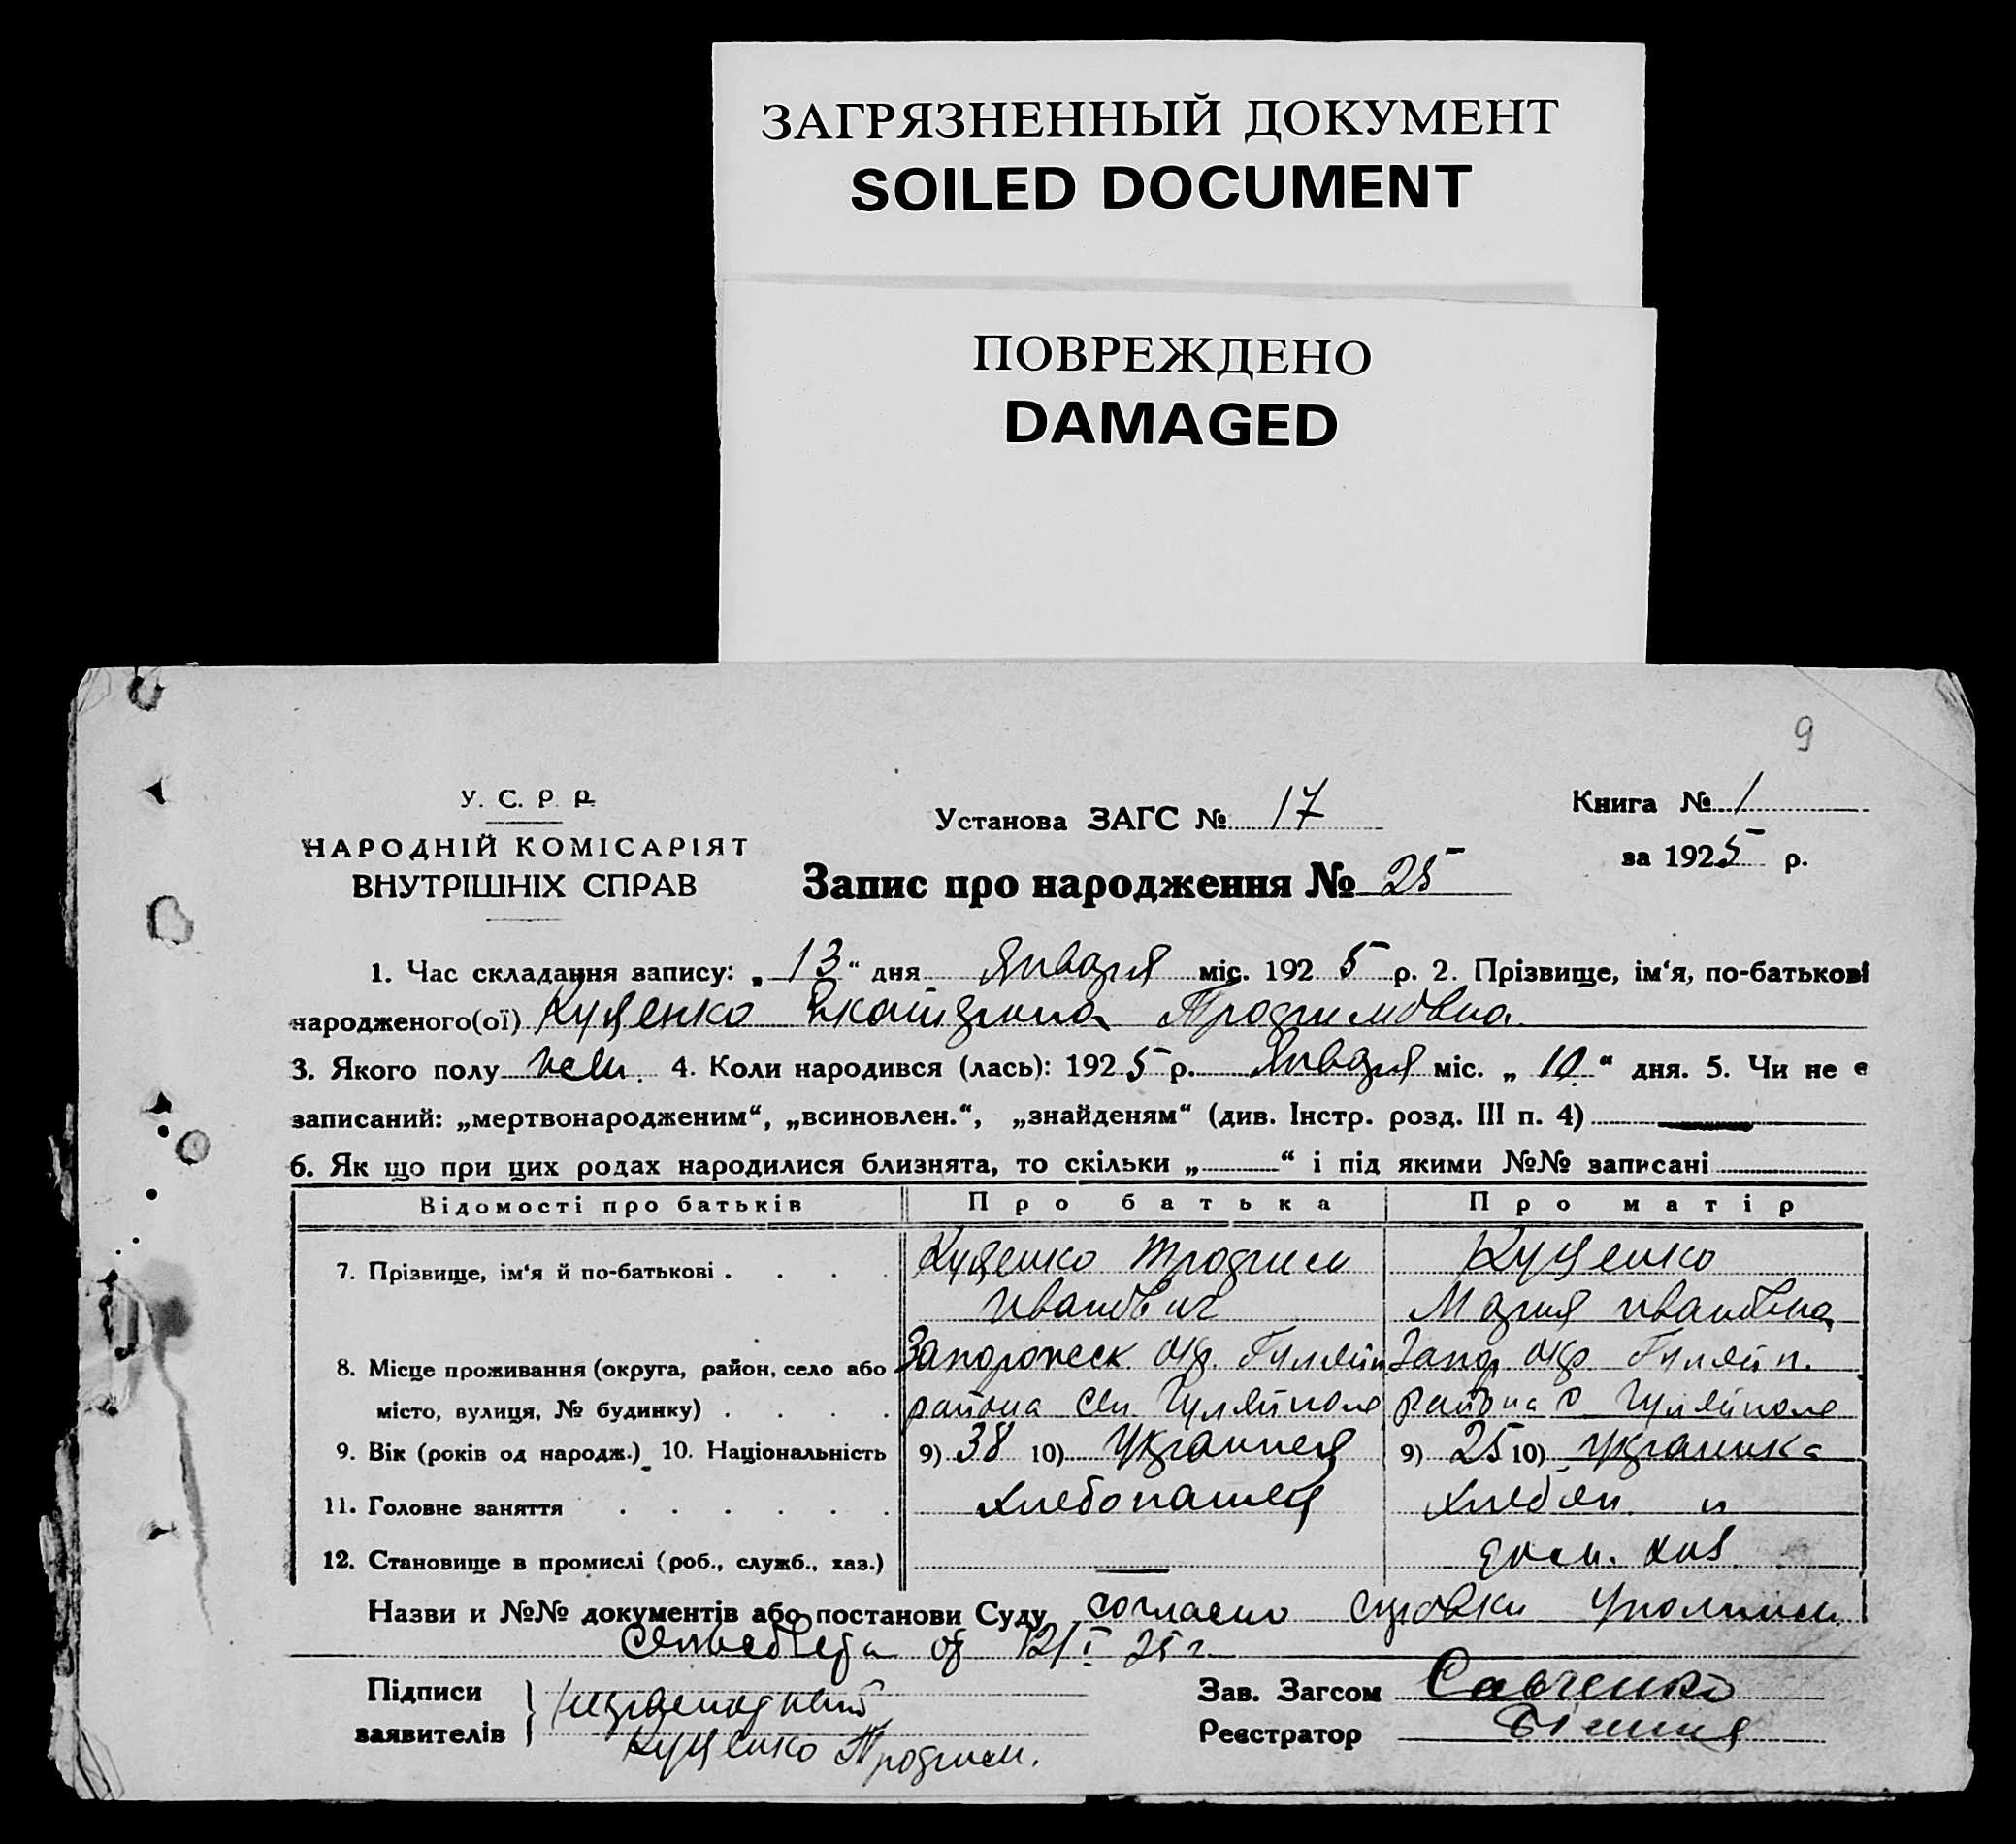 ЗАГРЯЗНЕННЫЙ ДОКУМЕНТ
SOILED DOCUMENT
ПОВРЕЖДЕНО
DAMAGED
9
У. С. Р. Р.
НАРОДНІЙ КОМІСАРІЯТ
ВНУТРІШНІХ СПРАВ
Установа ЗАГС № 17
Запис про народження № 25
Книга № 1
за 1925 р.
1. Час складання запису: „13“ дня Января міс. 1925 р. 2. Прізвище, ім‘я, по-батькові
народженого(ої) Куценко Екатерина Трофимовна
3. Якого полу жен. 4. Коли народився (лась): 1925 р. Января міс. „10“ дня. 5. Чи не є
записаний: „мертвонародженим“, „всиновлен.“, „знайденям“ (див. Інстр. розд. III п. 4)
6. Як що при цих родах народилися близнята, то скільки „ “ і під якими №№ записані
Відомості про батьків Про батька Про матір
7. Прізвище, ім‘я й по-батькові Куценко Трофим Куценко
Иванович Мария Ивановна
8. Місце проживання (округа, район, село або Запорожск. окр. Гуляйп. Запор. окр. Гуляйп.
місто, вулиця, № будинку) района сел. Гуляйполе района с Гуляйполе
9. Вік (років од народж.) 10. Національність 9) 38 10) Украинец 9) 25 10) Украинка
11. Головне заняття Хлебопашец Хлебоп. и
12. Становище в промислі (роб., служб., хаз.) — дом. хоз.
Назви и №№ документів або постанови Суду согласно справки
от 12/I 25 г.
Підписи
заявителів
неграмотный
Куценко Трофим.
Зав. Загсом Савченко
Реєстратор